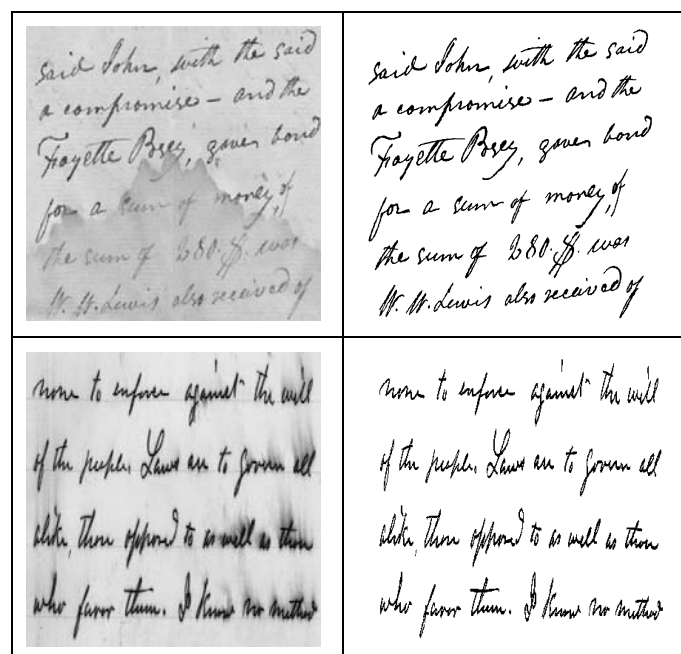 said John, with the said
a compromise – and the
Fayette Posey, gives bond
for a sum of money, of
the sum of 280.$. was
W. W. Lewis also received of
said John, with the said
a compromise – and the
Fayette Posey, gives bond
for a sum of money, of
the sum of 280.$. was
W. W. Lewis also received of
none to enforce against the will
of the people. Laws are to govern all
alike, those opposed to as well as those
who favor them. I know no method
none to enforce against the will
of the people. Laws are to govern all
alike, those opposed to as well as those
who favor them. I know no method